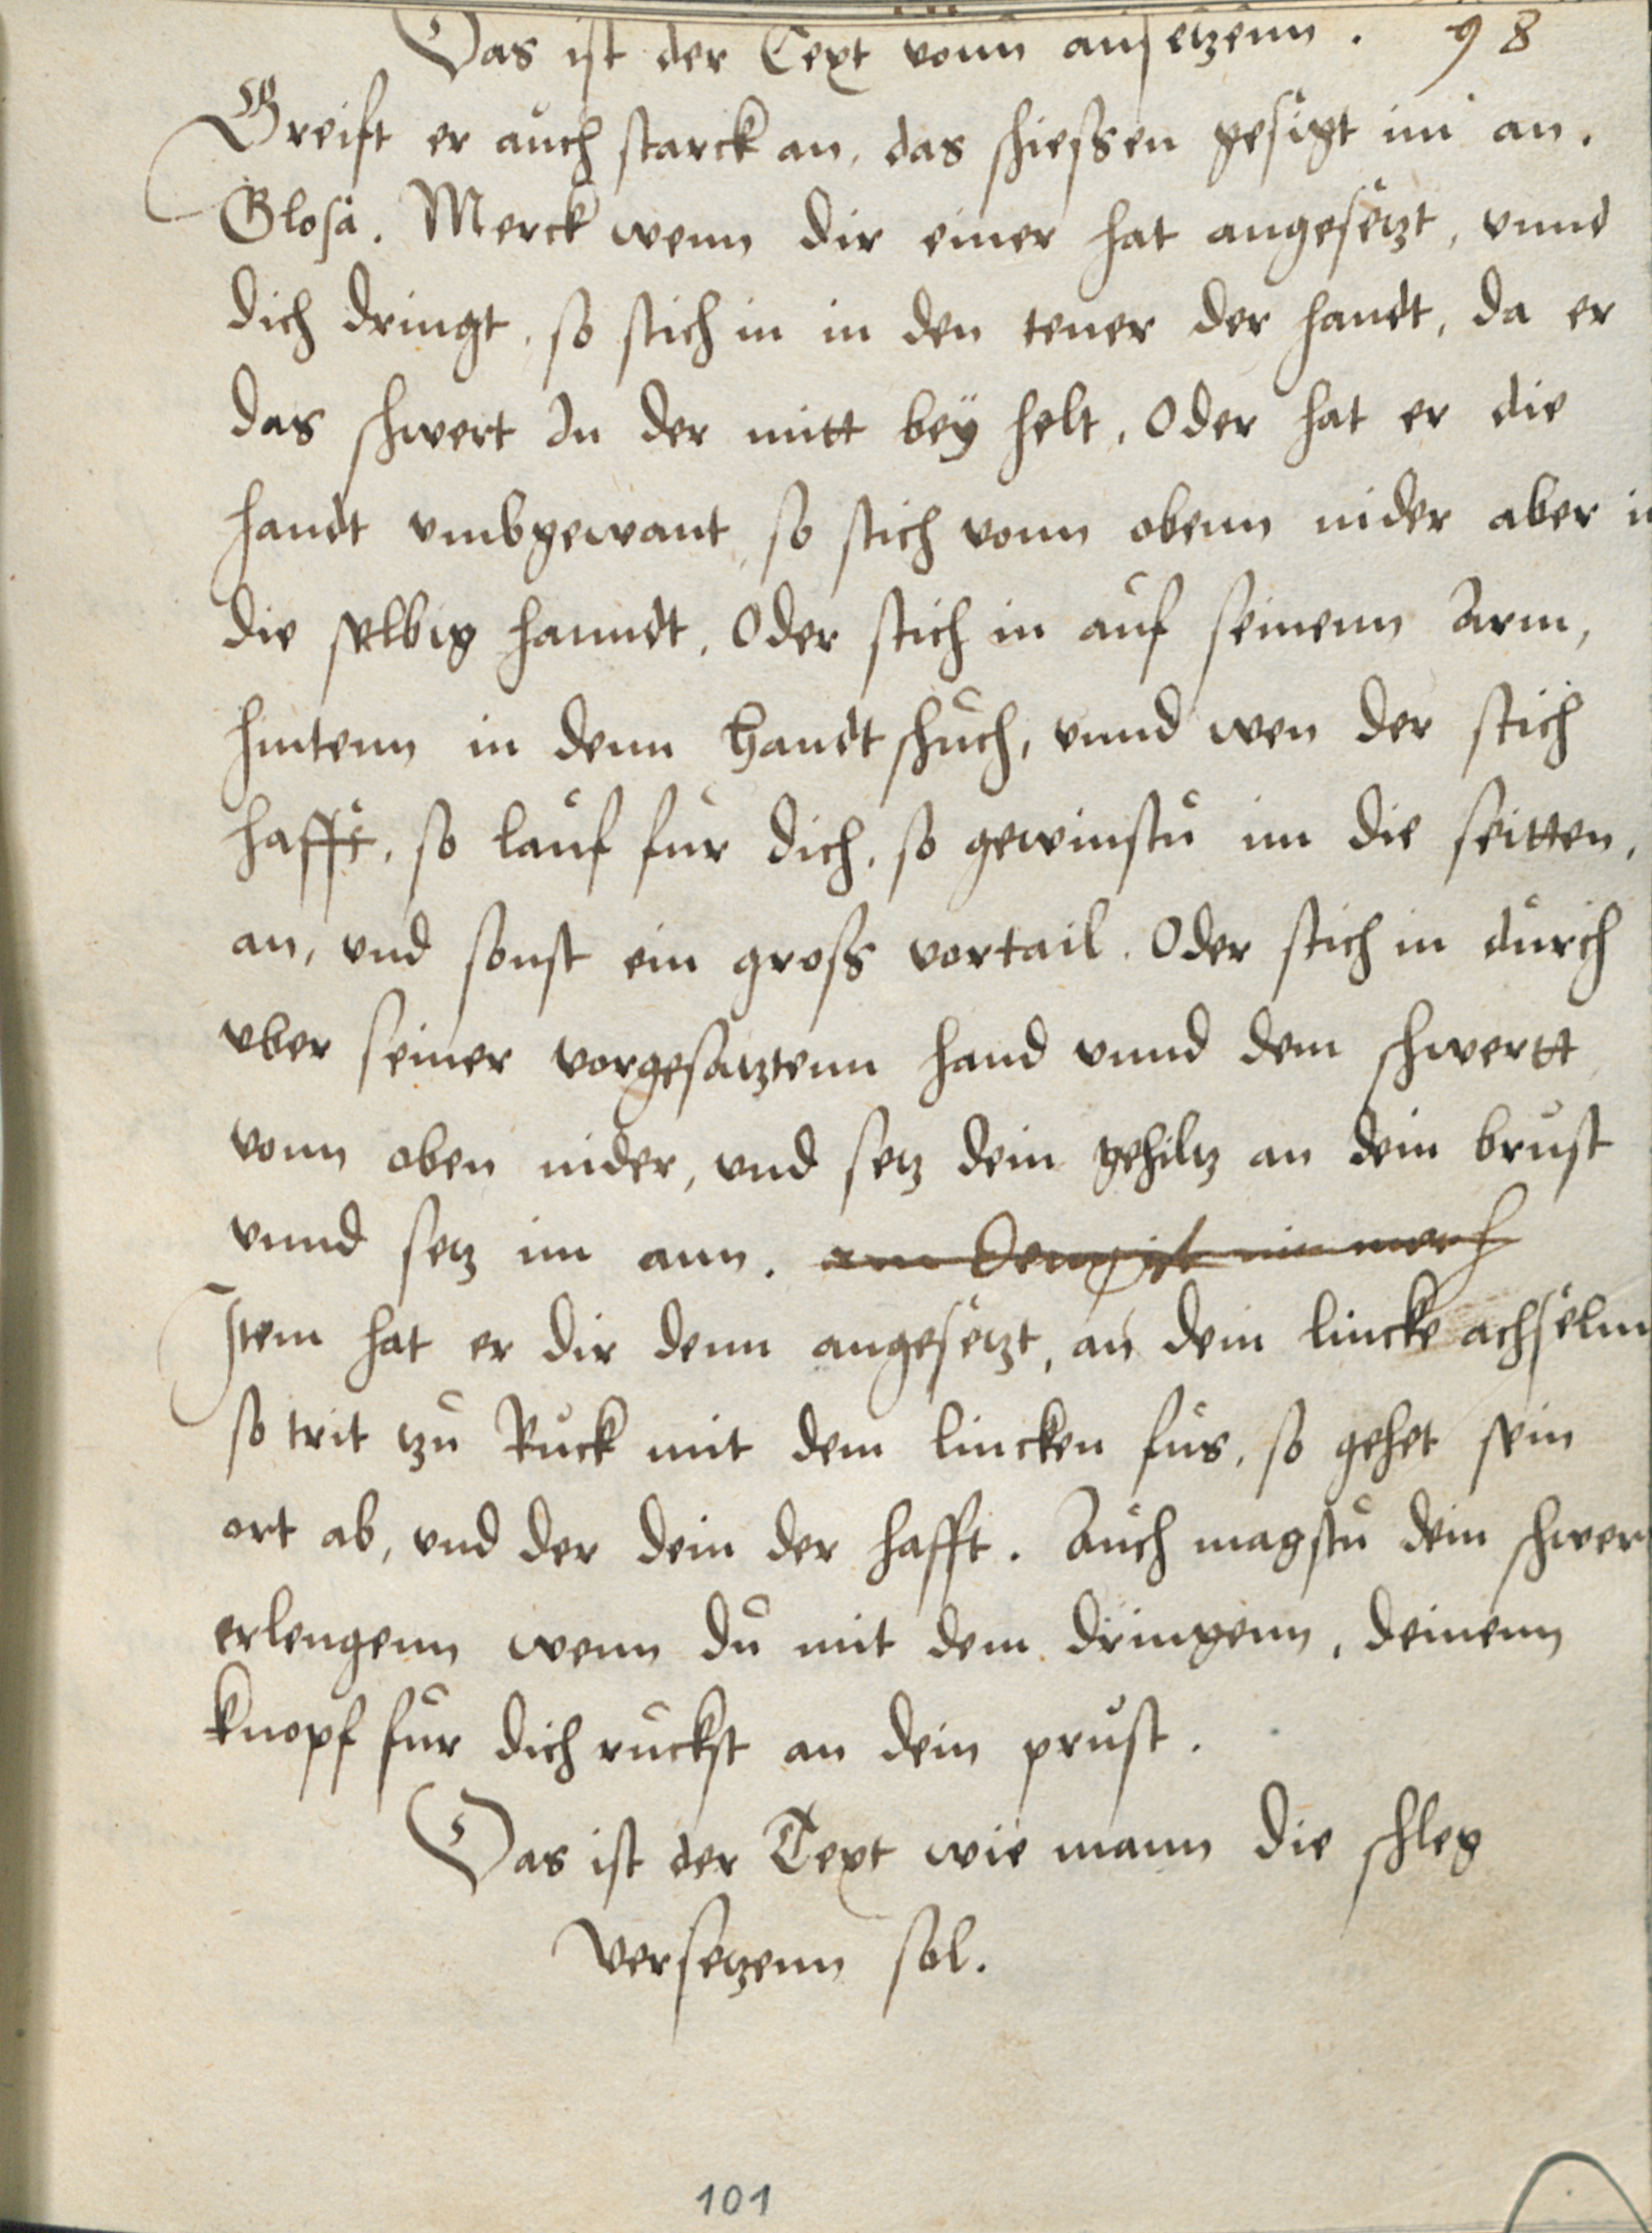 Das ist der Text vonn ansetzenn. 98
Greift er auch starck an, das schiessen gesigt im an.
Glosa. Merck wenn dir einer hat angesetzt, vnnd
dich dringt, so stich in in den tener der handt, da er
das schwert In der mitt bey helt, Oder hat er die
handt vmbgewant, so stich vonn obenn nider aber i
die selbig hanndt, Oder stich in auf seinenn Arm,
hintenn in denn handtschuch, vnnd wen der stich
hafft, so lauf fur dich, so gewinstu im die seitten,
an, vnd sonst ein gross vortail. Oder stich in durch
vber seiner vorgesatztenn hand vnnd dem schwertt
vonn oben nider, vnd setz dein gehiltz an dein brust
vnnd setz im ann.
Item hat er dir denn angesetzt, an dein lincke achselnn
so trit tzu Ruck mit dem lincken fus, so gehet sein
ort ab, vnd der dein der hafft. Auch magstu dein schwer
erlengenn wenn du mit dem dringenn, deinenn
knopf fur dich ruckst an dein prust.
Das ist der Text wie mann die schleg
versetzenn sol.
101